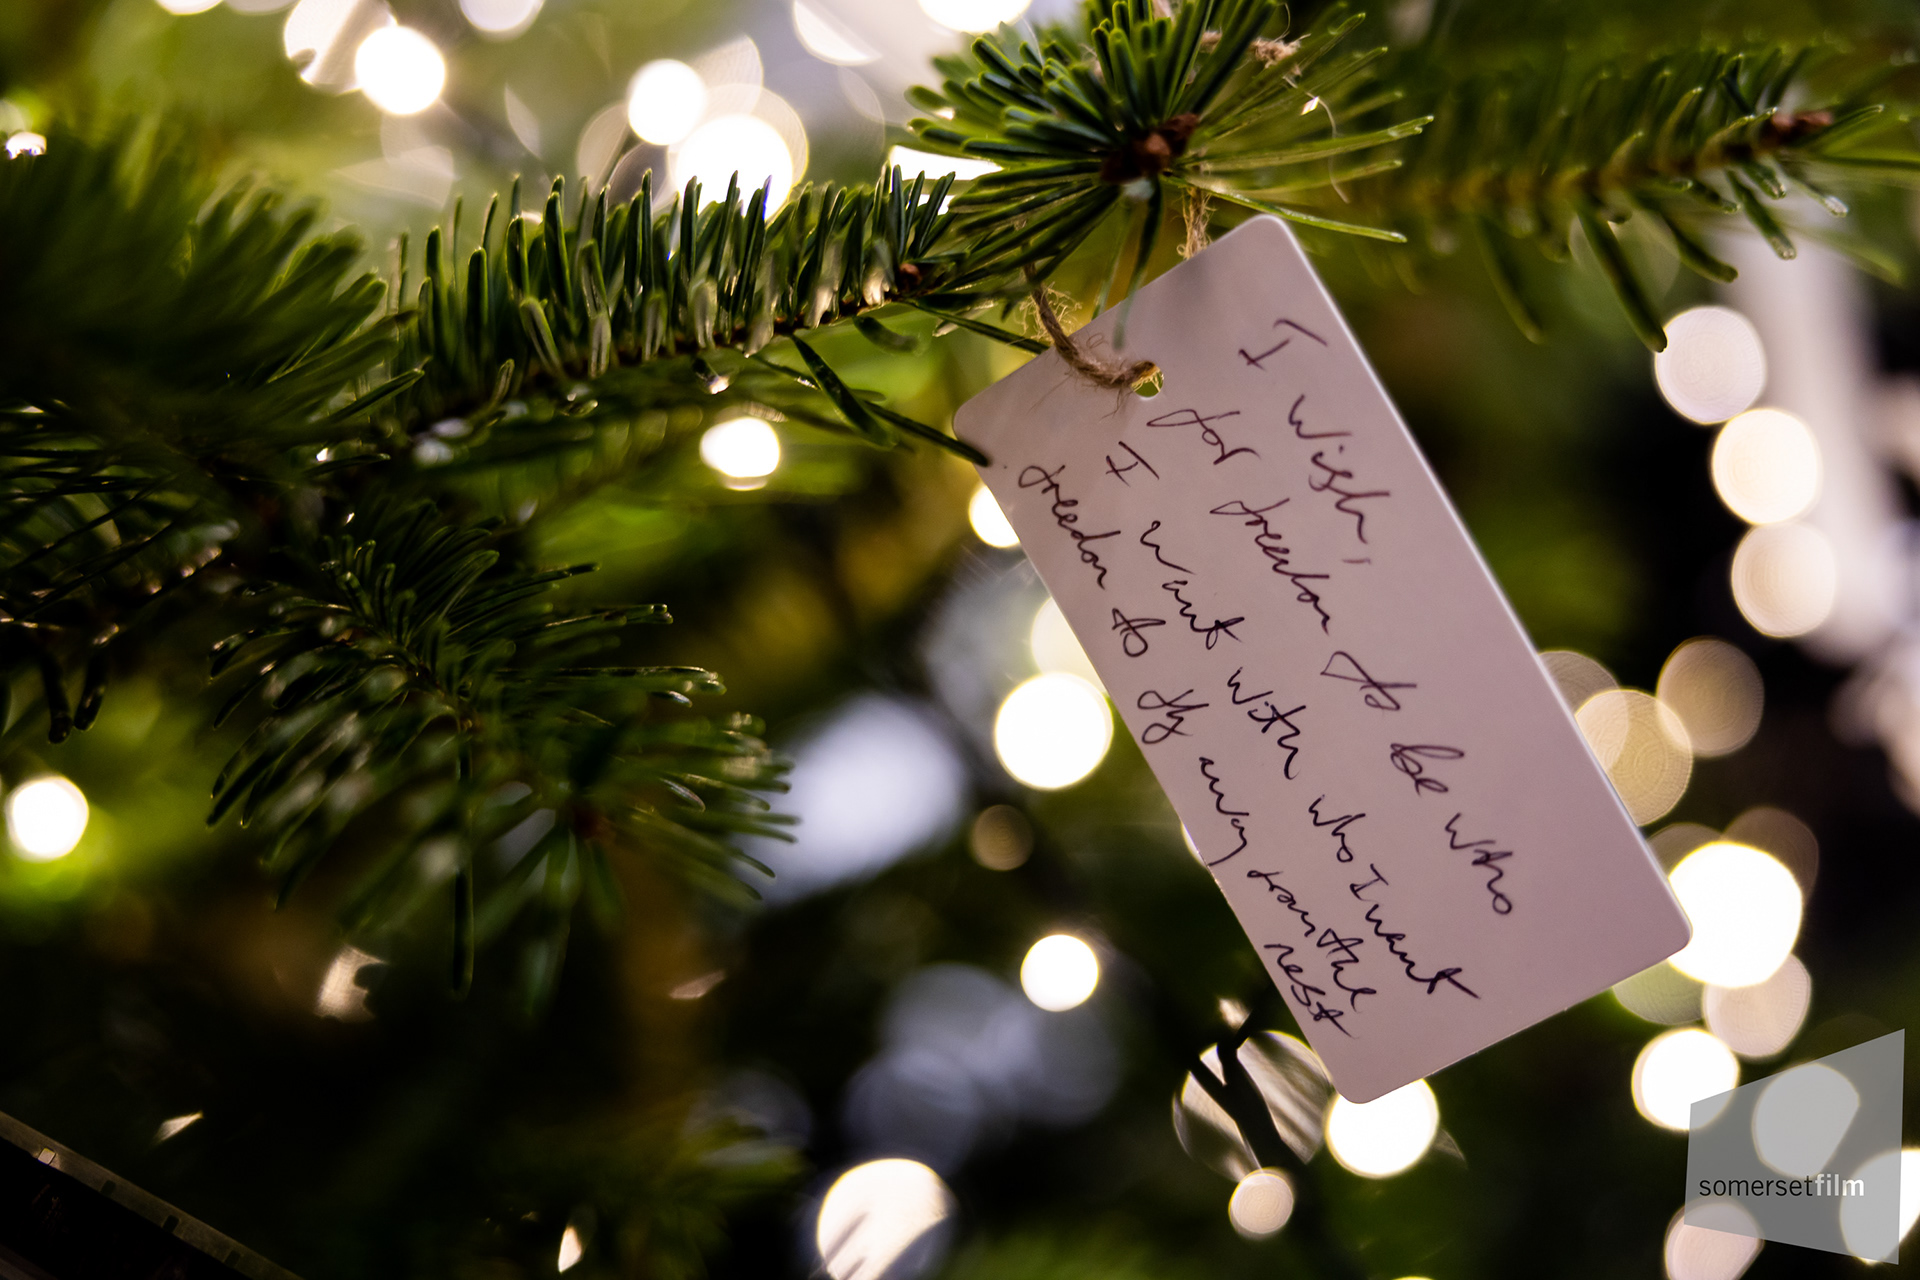 I wish,
for freedom to be who
I want with who I want
freedom to fly away from the
nest
somersetfilm